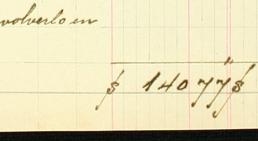 volverlo en
$ 14077$